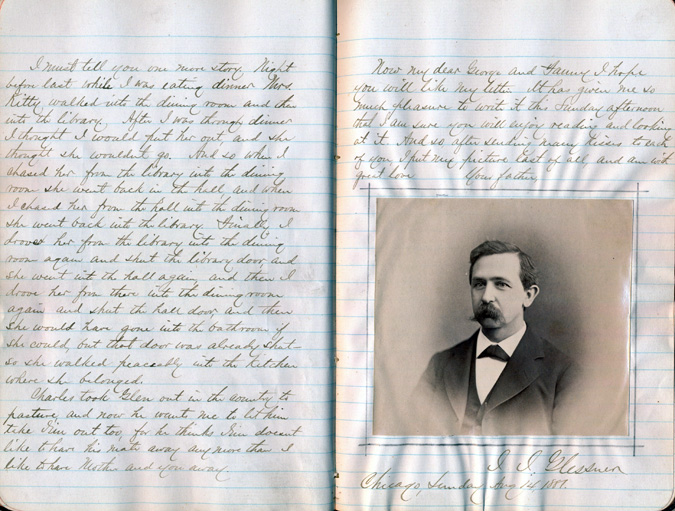 I must tell you one more story. Night
before last while I was eating dinner Mrs.
Kitty, walked into the dining room and then
into the library. After I was through dinner
I thought I would put her out, and she
thought she wouldn't go. And so when I
chased her from the library into the dining
room she went back in the hall, and when
I chased her from the hall into the dining room
she went back into the library. Finally, I
drove her from the library into the dining
room again and shut the library door, and
she went into the hall again, and then I
drove her from there into the dining room
again and shut the hall door, and then
she would have gone into the bathroom if
she could, but that door was already shut
so she walked peaceably into the kitchen
where she belonged.
Charles took Glen out in the country to
pasture, and now he wants me to let him
take Jim out too, for he thinks Jim doesnt
like to have his mate away any more than I
like to have Mother and you away.
Now my dear George and Fanny I hope
you will like my letter. It has given me so
much pleasure to write it this Sunday afternoon
that I am sure you will enjoy reading and looking
at it. And so after sending many kisses to each
of you, I put my picture last of all, and am with
great love Your father,
J. J. Glessner
Chicago, Sunday Aug 14, 1881.